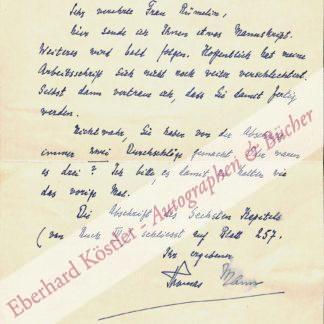 Sehr verehrte Frau Rümelin,
hier sende ich Ihnen etwas Manuskript.
Weiteres wird bald folgen. Hoffentlich hat meine
Arbeitsschrift sich nicht noch weiter verschlechtert.
Selbst dann vertraue ich, dass Sie damit fertig
werden.
Nicht wahr, Sie haben von der Abschrift
immer zwei Durchschläge gemacht, oder waren
es drei? Ich bitte, es damit zu halten wie
das vorige Mal.
Die Abschrift des Sechsten Kapitels
(von Buch III) schliesst auf Blatt 257.
Ihr ergebener
Thomas Mann
Eberhard Köstler - Autographen & Bücher